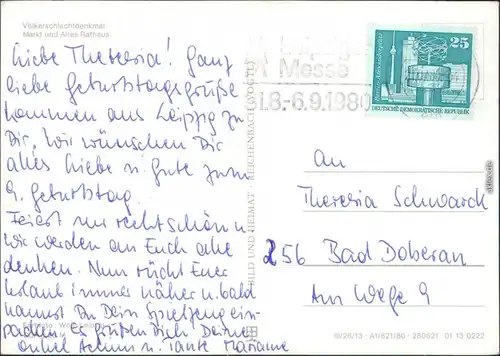 Völkerschlachtdenkmal
Markt und Altes Rathaus
Liebe Theresia! Ganz
liebe Geburtstagsgrüße
kommen aus Leipzig zu
Dir, wir wünschen Dir
alles Liebe u. Gute zum
9. Geburtstag.
Feiert nur recht schön u.
wir werden an Euch alle
denken. Nun rückt Euer
Urlaub immer näher u. bald
kannst Du Dein Spielzeug ein-
packen. Es grüßen Dich Deine
Onkel Achim u. Tante Marianne
BILD UND HEIMAT · REICHENBACH (VOGTL)
Leipziger
Messe
31.8.-6.9.1980
25
DEUTSCHE DEMOKRATISCHE REPUBLIK
An
Theresia Schwarck
256 Bad Doberan
Am Wege 9
III/26/13 · A1/621/80 · 280621 01 13 0222